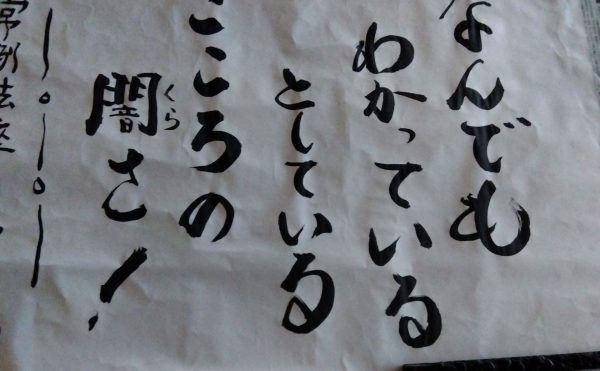 なんでも
わかっている
としている
こころの
くら
闇さ！
常例法座